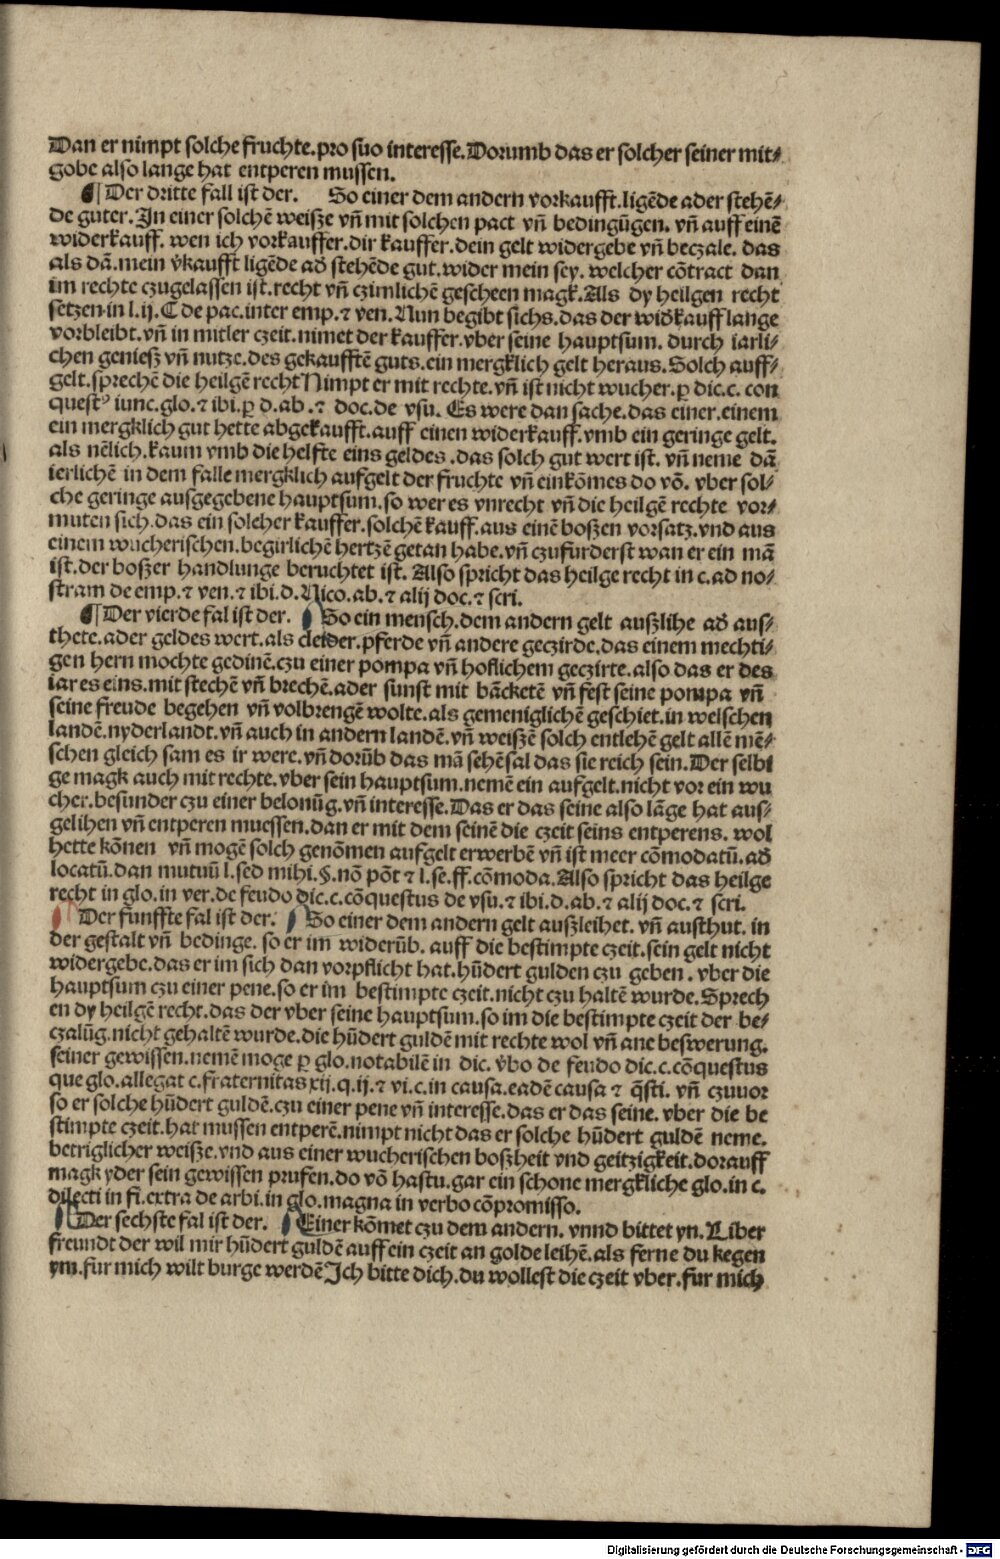 Dan er nimpt solche fruchte.pro suo interesse.Dorumb das er solcher seiner mit⸗
gobe also lange hat entperen mussen.
¶ Der dritte fall ist der. So einer dem andern vorkaufft.ligēde ader stehē⸗
de guter.In einer solchē weiße vñ mit solchen pact vñ bedingūgen. vñ auff einē
widerkauff. wen ich vorkauffer.dir kauffer.dein gelt widergebe vñ beczale. das
als dā.mein v̓kaufft ligēde ad̓ stehēde gut.wider mein sey. welcher cōtract dan
im rechte czugelassen ist.recht vñ czimlichē gescheen magk.Als dy heilgen recht
setzen in l.ij. C de pac.inter emp.⁊ ven.Nun begibt sichs.das der wid̓kauff lange
vorbleibt.vñ in mitler czeit.nimet der kauffer.vber seine hauptsum. durch iarli⸗
chen genieß vñ nutze.des gekaufftē guts.ein mergklich gelt heraus.Solch auff⸗
gelt.sprechē die heilgē recht Nimpt er mit rechte.vñ ist nicht wucher.ꝑ dic.c. con
questꝰ iunc.glo.⁊ ibi.ꝑ d.ab.⁊ doc.de vsu. Es were dan sache.das einer.einem
ein mergklich gut hette abgekaufft.auff einen widerkauff.vmb ein geringe gelt.
als nēlich.kaum vmb die helfte eins geldes.das solch gut wert ist. vñ neme dā
ierlichē in dem falle mergklich aufgelt der fruchte vñ einkōmes do vō. vber sol⸗
che geringe ausgegebene hauptsum.so wer es vnrecht vñ die heilgē rechte vor⸗
muten sich.das ein solcher kauffer.solchē kauff.aus einē boßen vorsatz.vnd aus
einem wucherischen.begirlichē hertzē getan habe.vñ czufurderst wan er ein mā
ist.der boßer handlunge beruchtet ist. Also spricht das heilge recht in c.ad no⸗
stram de emp.⁊ ven.⁊ ibi.d.Nico.ab.⁊ alij doc.⁊ scri.
¶ Der vierde fal ist der. So ein mensch.dem andern gelt außlihe ad̓ aus⸗
thete.ader geldes wert.als cleider.pferde vñ andere geczirde.das einem mechti⸗
gen hern mochte gedinē.czu einer pompa vñ hoflichem geczirte.also das er des
iares eins.mit stechē vñ brechē.ader sunst mit bācketē vñ fest seine pompa vñ
seine freude begehen vñ volbrengē wolte.als gemeniglichē geschiet.in welschen
landē.nyderlandt.vñ auch in andern landē.vñ weißē solch entlehē gelt allē mē⸗
schen gleich sam es ir were.vñ dorūb das mā sehē sal das sie reich sein.Der selbi
ge magk auch mit rechte.vber sein hauptsum.nemē ein aufgelt.nicht vor ein wu
cher.besunder czu einer belonūg.vñ interesse.Das er das seine also lāge hat aus⸗
gelihen vñ entperen muessen.dan er mit dem seinē die czeit seins entperens. wol
hette kōnen vñ mogē solch genōmen aufgelt erwerbē vñ ist meer cōmodatū.ad̓
locatū.dan mutuū l.sed mihi.§.nō pōt ⁊ l.se.ff.cōmoda.Also spricht das heilge
recht in glo.in ver.de feudo dic.c.cōquestus de vsu.⁊ ibi.d.ab.⁊ alij doc.⁊ scri.
Der funffte fal ist der. So einer dem andern gelt außleihet. vñ austhut. in
der gestalt vñ bedinge. so er im widerūb. auff die bestimpte czeit.sein gelt nicht
widergebe.das er im sich dan vorpflicht hat.hūdert gulden czu geben. vber die
hauptsum czu einer pene.so er im bestimpte czeit.nicht czu haltē wurde.Sprech
en dy heilgē recht.das der vber seine hauptsum.so im die bestimpte czeit der be⸗
czalūg.nicht gehaltē wurde.die hūdert guldē mit rechte wol vñ ane beswerung.
seiner gewissen.nemē moge ꝑ glo.notabilē in dic. v̓bo de feudo dic.c.cōquestus
que glo.allegat c.fraternitas xij.q.ij.⁊ vi.c.in causa.eadē causa ⁊ q̄sti. vñ czuuor
so er solche hūdert guldē.czu einer pene vñ interesse.das er das seine. vber die be
stimpte czeit.hat mussen entperē.nimpt nicht das er solche hūdert guldē neme.
betriglicher weiße.vnd aus einer wucherischen boßheit vnd geitzigkeit.dorauff
magk yder sein gewissen prufen.do vō hastu.gar ein schone mergkliche glo.in c.
dilecti in fi.extra de arbi.in glo.magna in verbo cōpromisso.
Der sechste fal ist der. Einer kōmet czu dem andern. vnnd bittet yn. Liber
freundt der wil mir hūdert guldē auff ein czeit an golde leihē.als ferne du kegen
ym.fur mich wilt burge werdē Ich bitte dich.du wollest die czeit vber.fur mich
Digitalisierung gefördert durch die Deutsche Forschungsgemeinschaft - DFG